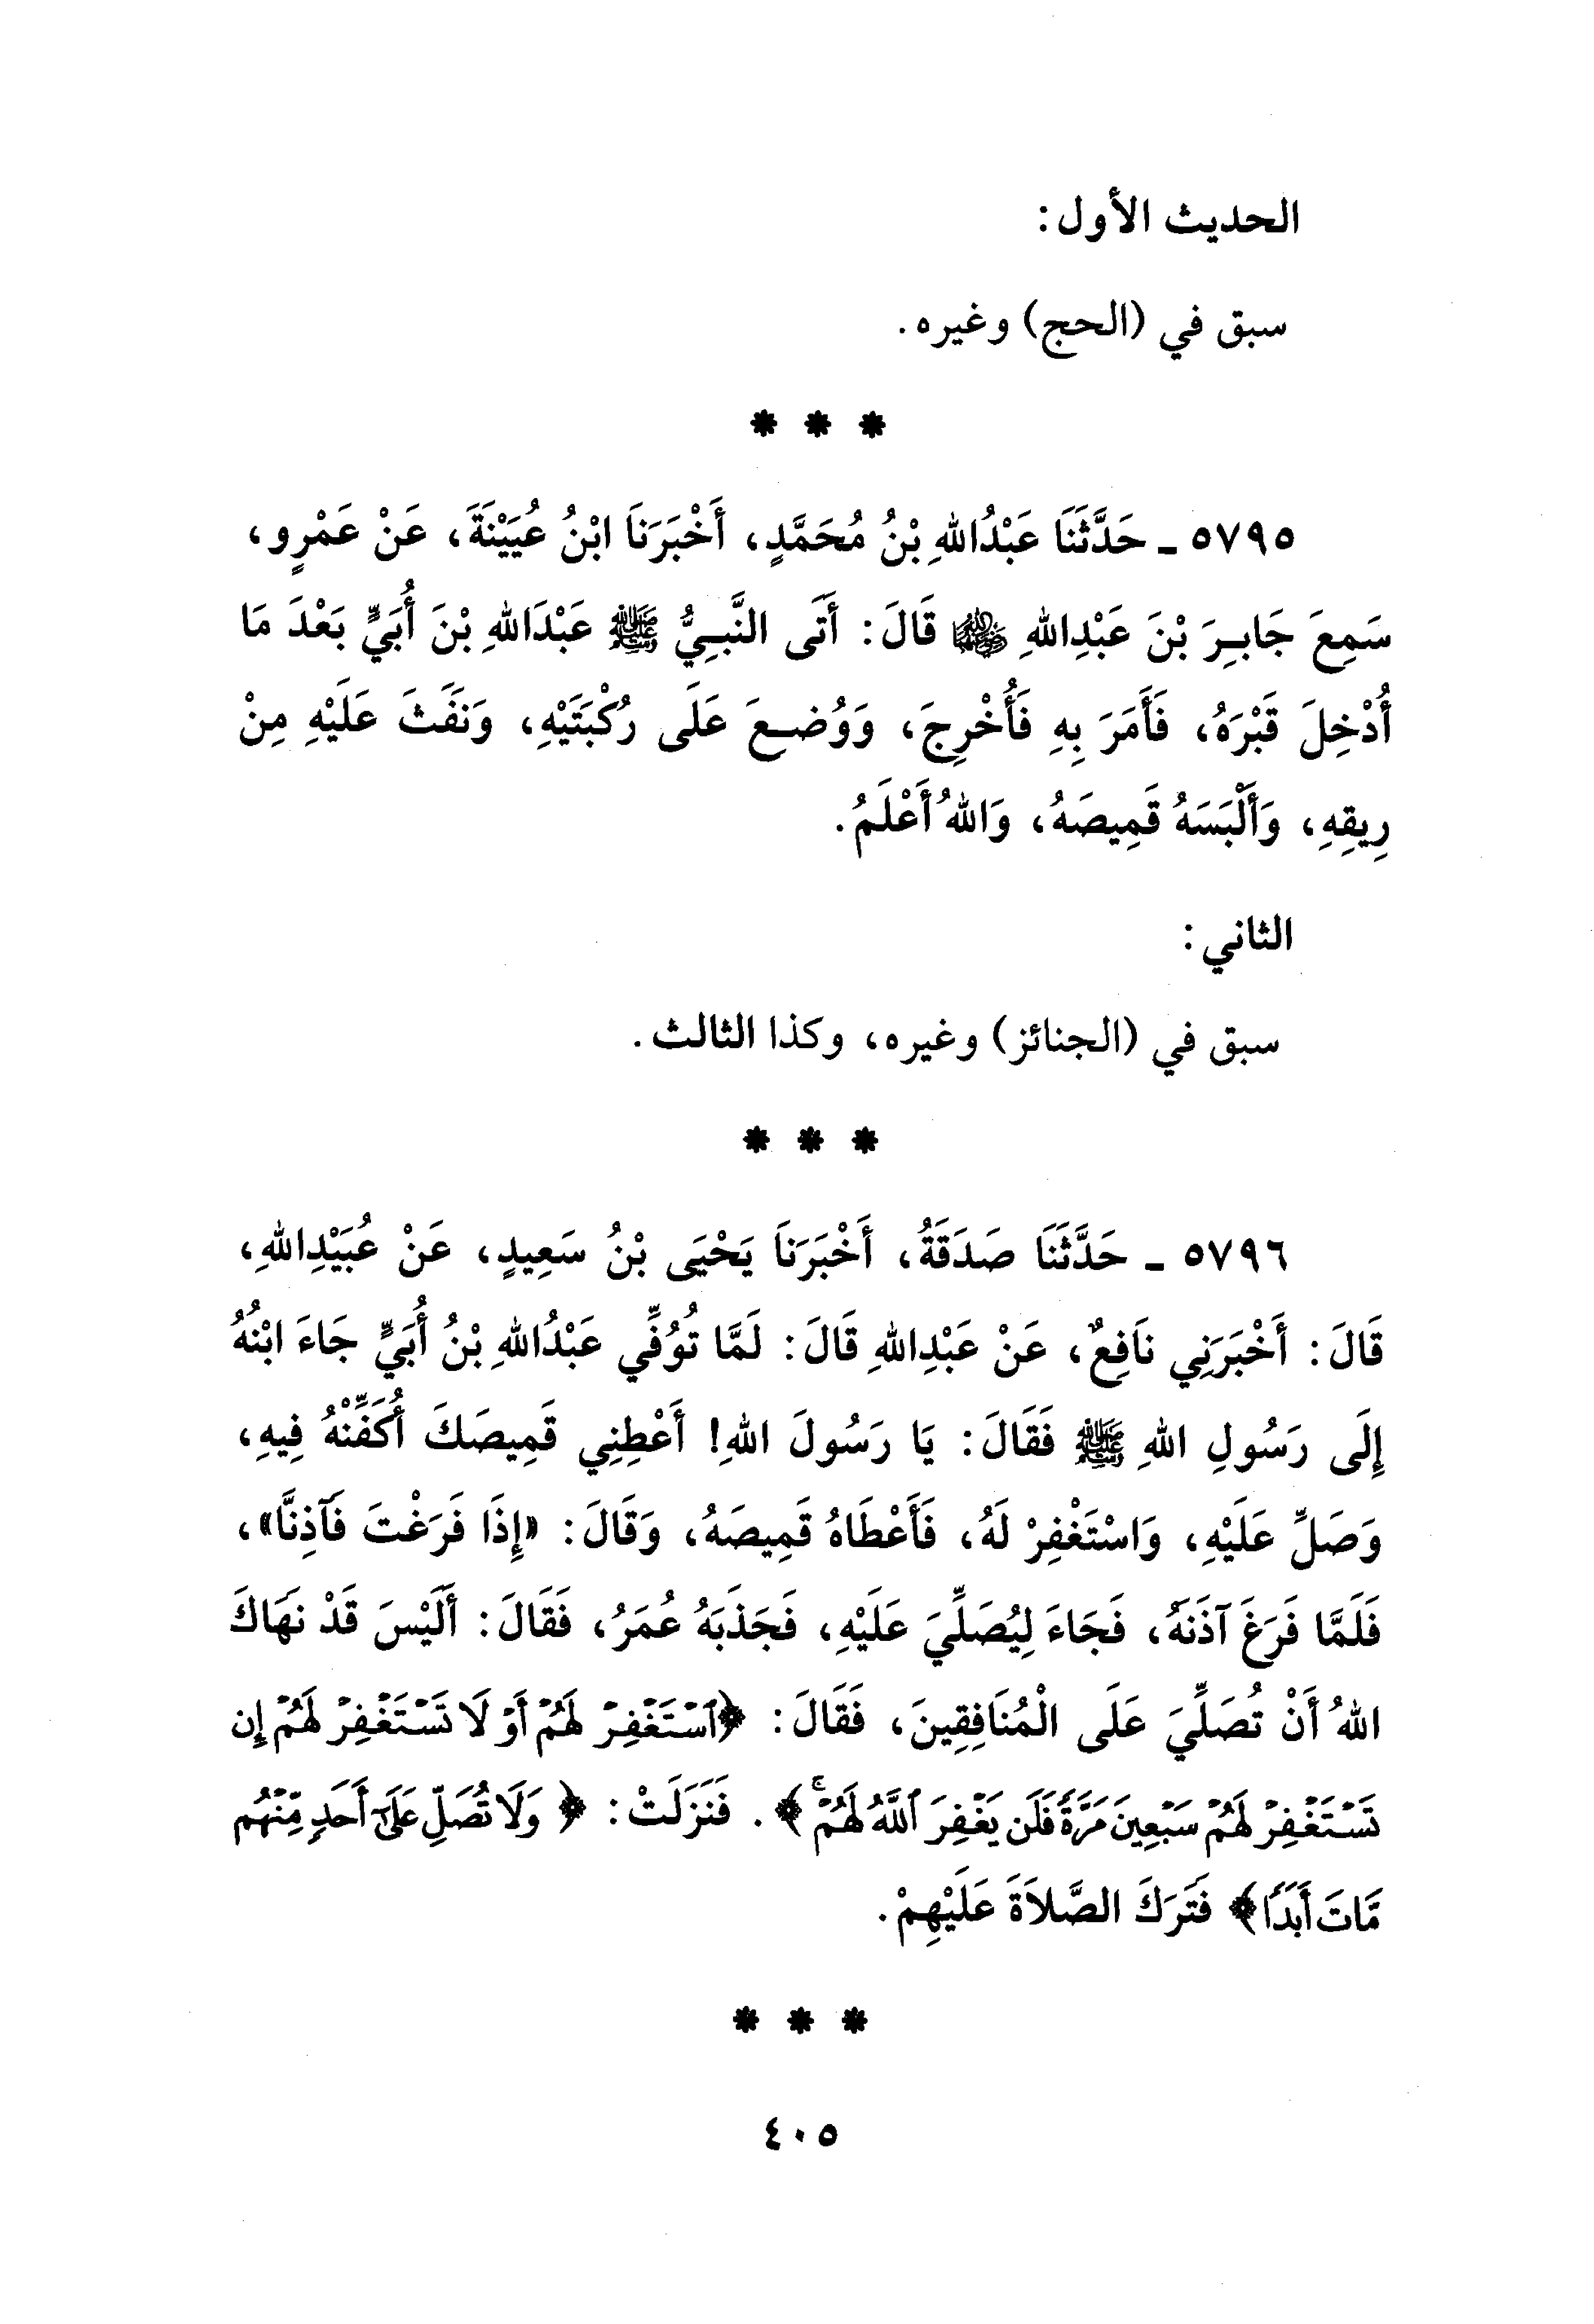 الحديث الأول:
سبق في (الحج) وغيره.
* * *
٥٧٩٥ - حَدَّثَنَا عَبْدُاللهِ بْنُ مُحَمَّدٍ، أَخْبَرَنَا ابْنُ عُيَيْنَةَ، عَنْ عَمْرٍو،
سَمِعَ جَابِرَ بْنَ عَبْدِاللهِ رضي الله عنه قَالَ: أَتَى النَّبِيُّ ﷺ عَبْدَاللهِ بْنَ أُبَيٍّ بَعْدَ مَا
أُدْخِلَ قَبْرَهُ، فَأَمَرَ بِهِ فَأُخْرِجَ، وَوُضِعَ عَلَى رُكْبَتَيْهِ، وَنَفَثَ عَلَيْهِ مِنْ
رِيقِهِ، وَأَلْبَسَهُ قَمِيصَهُ، وَاللهُ أَعْلَمُ.
الثاني:
سبق في (الجنائز) وغيره، وكذا الثالث.
* * *
٥٧٩٦ - حَدَّثَنَا صَدَقَةُ، أَخْبَرَنَا يَحْيَى بْنُ سَعِيدٍ، عَنْ عُبَيْدِاللهِ،
قَالَ: أَخْبَرَنِي نَافِعٌ، عَنْ عَبْدِاللهِ قَالَ: لَمَّا تُوُفِّي عَبْدُاللهِ بْنُ أُبَيٍّ جَاءَ ابْنُهُ
إِلَى رَسُولِ اللهِ ﷺ فَقَالَ: يَا رَسُولَ اللهِ! أَعْطِنِي قَمِيصَكَ أُكَفِّنْهُ فِيهِ،
وَصَلِّ عَلَيْهِ، وَاسْتَغْفِرْ لَهُ، فَأَعْطَاهُ قَمِيصَهُ، وَقَالَ: «إِذَا فَرَغْتَ فَآذِنَّا»،
فَلَمَّا فَرَغَ آذَنَهُ، فَجَاءَ لِيُصَلِّيَ عَلَيْهِ، فَجَذَبَهُ عُمَرُ، فَقَالَ: أَلَيْسَ قَدْ نَهَاكَ
اللهُ أَنْ تُصَلِّيَ عَلَى الْمُنَافِقِينَ، فَقَالَ: ﴿ٱسْتَغْفِرْ لَهُمْ أَوْ لَا تَسْتَغْفِرْ لَهُمْ إِن
تَسْتَغْفِرْ لَهُمْ سَبْعِينَ مَرَّةً فَلَن يَغْفِرَ ٱللَّهُ لَهُمْۚ﴾. فَنَزَلَتْ: ﴿وَلَا تُصَلِّ عَلَىٰٓ أَحَدٍ مِّنْهُم
مَّاتَ أَبَدًا﴾ فَتَرَكَ الصَّلاَةَ عَلَيْهِمْ.
* * *
٤٠٥